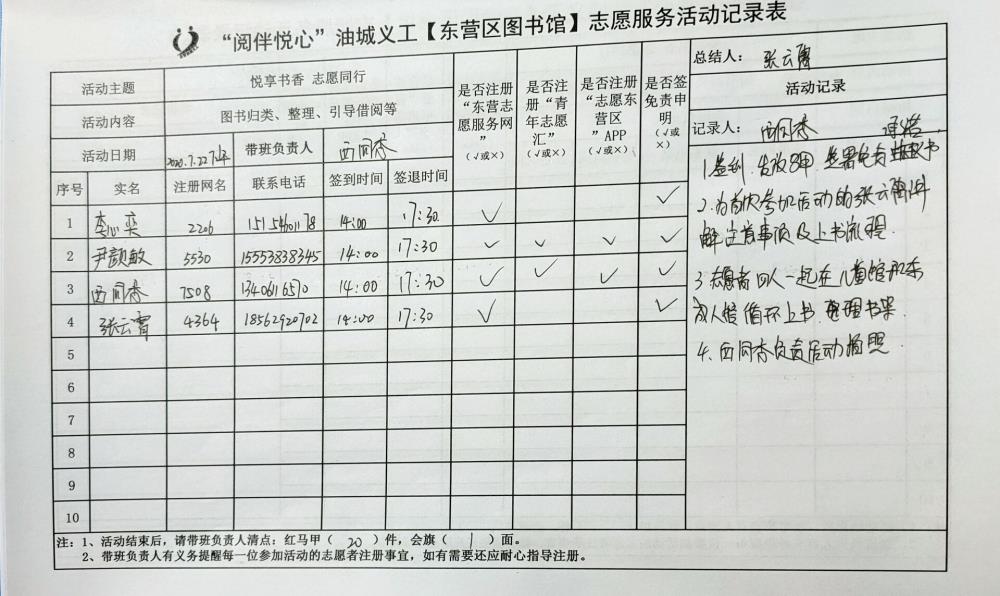 “阅伴悦心”油城义工【东营区图书馆】志愿服务活动记录表
活动主题 悦享书香 志愿同行
活动内容 图书归类、整理、引导借阅等
活动日期 2020.7.22下午 带班负责人 西同香
是否注册“东营志愿服务网”（√或×）
是否注册“青年志愿汇”（√或×）
是否注册“志愿东营区”APP（√或×）
是否签免责申明（√或×）
序号 实名 注册网名 联系电话 签到时间 签退时间
1 李心奕 2206 15154601178 14:00 17:30 √ √
2 尹颜敏 5530 15553838345 14:00 17:30 √ √ √ √
3 西同香 7508 13406116570 14:00 17:30 √ √ √ √
4 张云霄 4364 18562920702 14:00 17:30 √ √
5
6
7
8
9
10
总结人： 张云霄
活动记录
记录人： 西同香 承诺
1.签到.发放马甲.签署免责 书
2.为首次参加活动的张云霄讲
解注意事项及上书流程.
3.志愿者四人一起在儿童馆和
成人馆循环上书.整理书架.
4.西同香负责活动拍照.
注：1、活动结束后，请带班负责人清点：红马甲（ 20 ）件，会旗（ 1 ）面。
2、带班负责人有义务提醒每一位参加活动的志愿者注册事宜，如有需要还应耐心指导注册。